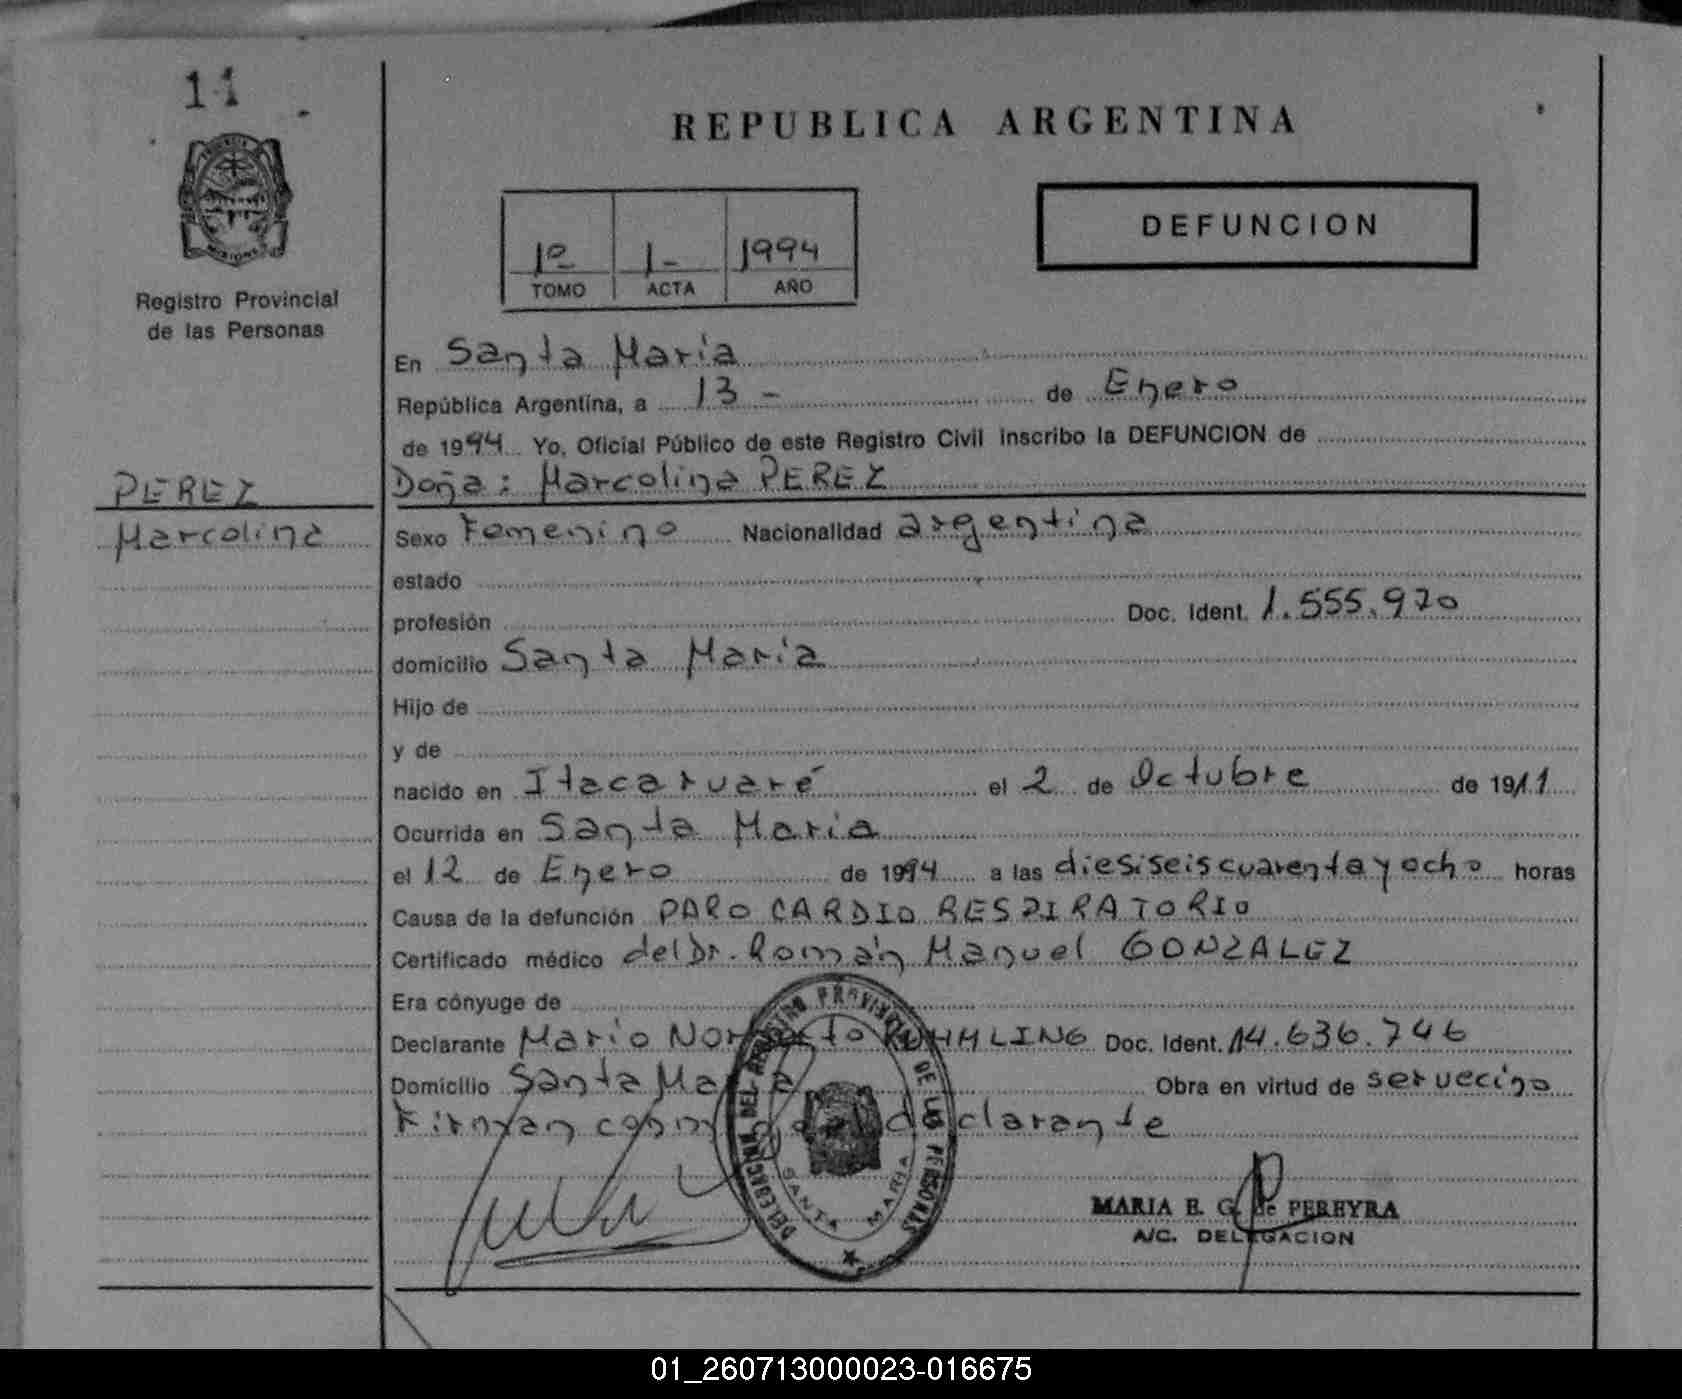 11
REPUBLICA ARGENTINA
DEFUNCION
1º 1- 1994
TOMO ACTA AÑO
Registro Provincial
de las Personas
En Santa María
República Argentina, a 13 - de Enero
de 1994 Yo, Oficial Público de este Registro Civil inscribo la DEFUNCION de
PEREZ
Marcolina
Doña: Marcolina PEREZ
Sexo Femenino Nacionalidad argentina
estado
profesión Doc. Ident. 1.555.970
domicilio Santa María
Hijo de
y de
nacido en Itacaruaré el 2 de Octubre de 1911
Ocurrida en Santa María
el 12 de Enero de 1994 a las diesiseis cuarenta y ocho horas
Causa de la defunción PARO CARDIO RESPIRATORIO
Certificado médico del Dr. Román Manuel GONZALEZ
Era cónyuge de
Declarante Mario Norberto Doc. Ident. 14.636.746
Domicilio Santa María Obra en virtud de ser vecino
Firman conmigo el declarante
DELEGACION DEL REGISTRO PROVINCIAL DE LAS PERSONAS
SANTA MARIA
MARIA E. G. de PEREYRA
A/C. DELEGACION
01_260713000023-016675